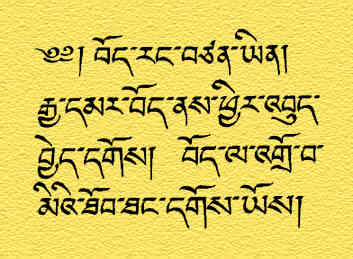 ༄༅། བོད་རང་བཙན་ཡིན།
རྒྱ་དམར་བོད་ནས་ཕྱིར་འབུད་
བྱེད་དགོས། བོད་ལ་འགྲོ་བ་
མིའི་ཐོབ་ཐང་དགོས་ཡོས།